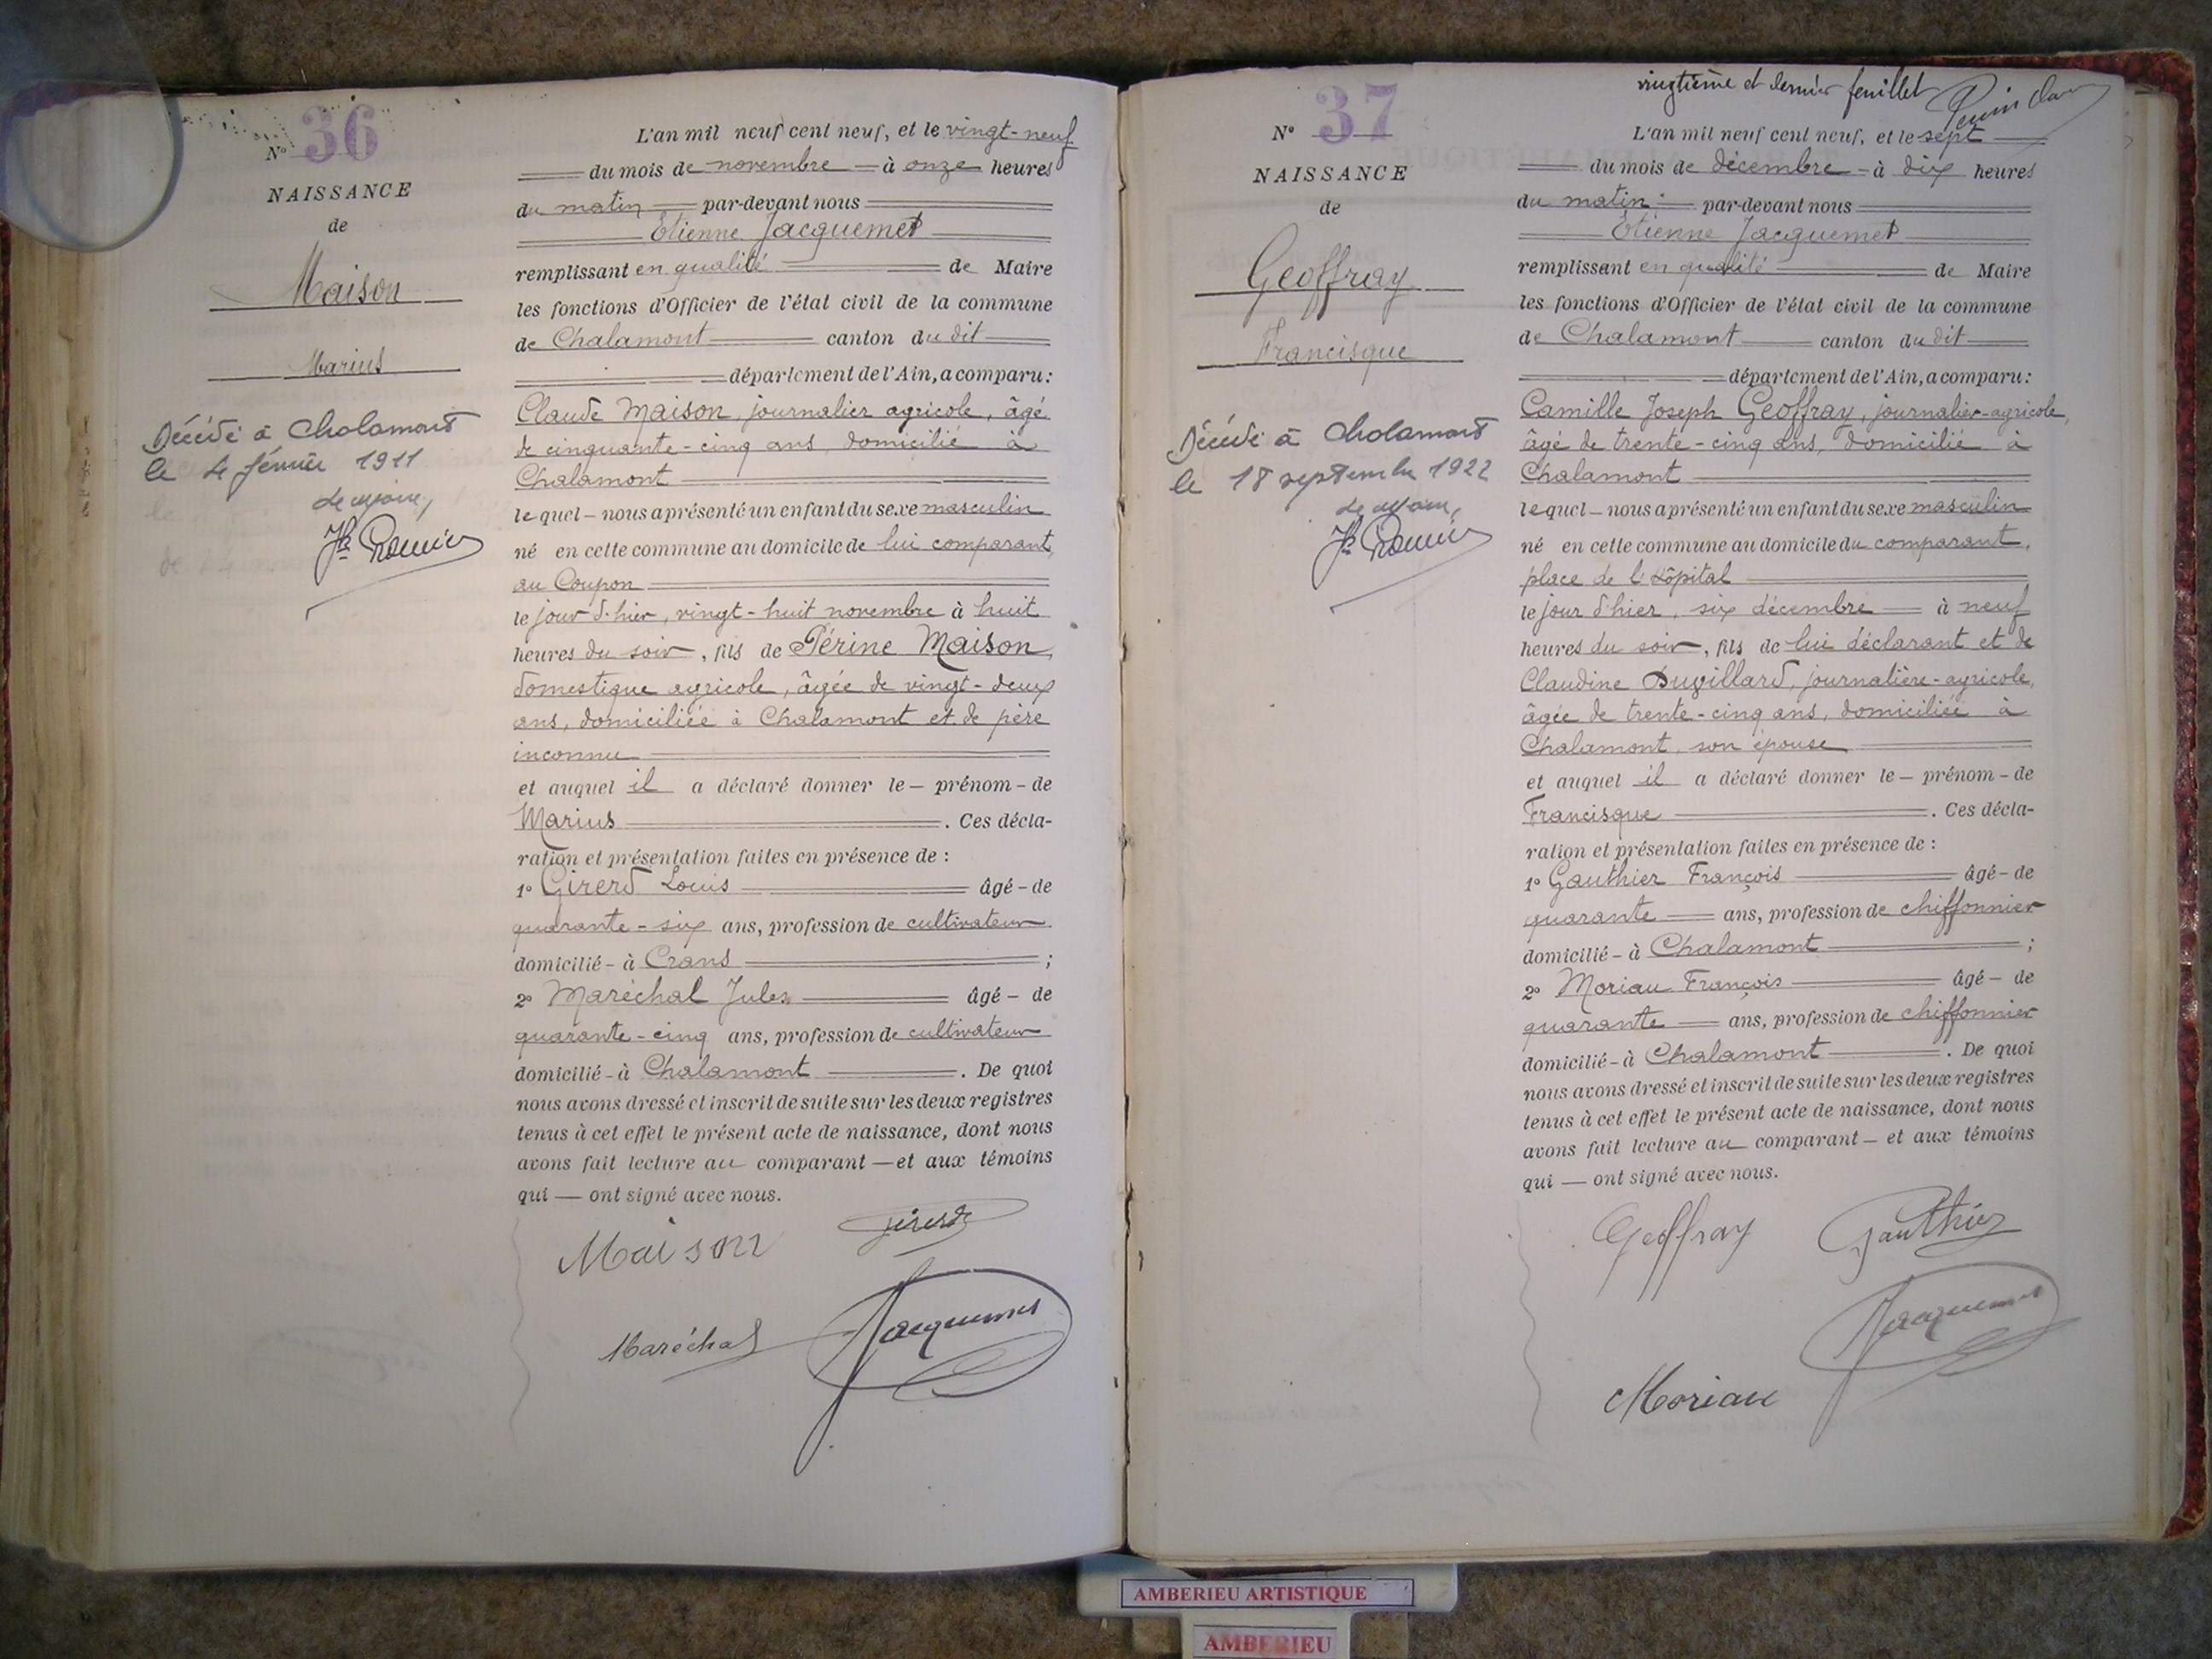 N° 36
NAISSANCE
de
Maison
Marius
Décédé à Chalamont
le 4 février 1911
Le Maire,
L'an mil neuf cent neuf, et le vingt-neuf
du mois de novembre à onze heures
du matin par-devant nous
Etienne Jacquemet
remplissant en qualité de Maire
les fonctions d'Officier de l'état civil de la commune
de Chalamont canton du dit
département de l'Ain, a comparu :
Claude Maison, journalier agricole, âgé
de cinquante-cinq ans, domicilié à
Chalamont
lequel — nous a présenté un enfant du sexe masculin
né en cette commune au domicile de lui comparant,
au Coupon
le jour d'hier, vingt-huit novembre à huit
heures du soir, fils de Périne Maison,
domestique agricole, âgée de vingt-deux
ans, domiciliée à Chalamont et de père
inconnu
et auquel il a déclaré donner le — prénom - de
Marius . Ces décla-
ration et présentation faites en présence de :
1° Girerd Louis âgé - de
quarante-six ans, profession de cultivateur
domicilié - à Crans ;
2° Maréchal Jules âgé - de
quarante-cinq ans, profession de cultivateur
domicilié - à Chalamont . De quoi
nous avons dressé et inscrit de suite sur les deux registres
tenus à cet effet le présent acte de naissance, dont nous
avons fait lecture au comparant — et aux témoins
qui — ont signé avec nous.
Maison Girerd
Maréchal Jacquemet
vingtième et dernier feuillet
N° 37
NAISSANCE
de
Geoffray
Francisque
Décédé à Chalamont
le 18 septembre 1922
Le Maire,
L'an mil neuf cent neuf, et le sept
du mois de décembre - à dix heures
du matin par-devant nous
Etienne Jacquemet
remplissant en qualité de Maire
les fonctions d'Officier de l'état civil de la commune
de Chalamont canton du dit
département de l'Ain, a comparu :
Camille Joseph Geoffray, journalier-agricole,
âgé de trente-cinq ans, domicilié à
Chalamont
lequel — nous a présenté un enfant du sexe masculin
né en cette commune au domicile du comparant,
place de l'hôpital
le jour d'hier, six décembre à neuf
heures du soir, fils de lui déclarant et de
Claudine Duvillard, journalière-agricole,
âgée de trente-cinq ans, domiciliée à
Chalamont, son épouse
et auquel il a déclaré donner le — prénom - de
Francisque . Ces décla-
ration et présentation faites en présence de :
1° Gauthier François âgé - de
quarante ans, profession de chiffonnier
domicilié - à Chalamont ;
2° Moriau François âgé - de
quarante ans, profession de chiffonnier
domicilié - à Chalamont . De quoi
nous avons dressé et inscrit de suite sur les deux registres
tenus à cet effet le présent acte de naissance, dont nous
avons fait lecture au comparant — et aux témoins
qui — ont signé avec nous.
Geoffray Gauthier
Jacquemet
Moriau
AMBERIEU ARTISTIQUE
AMBERIEU